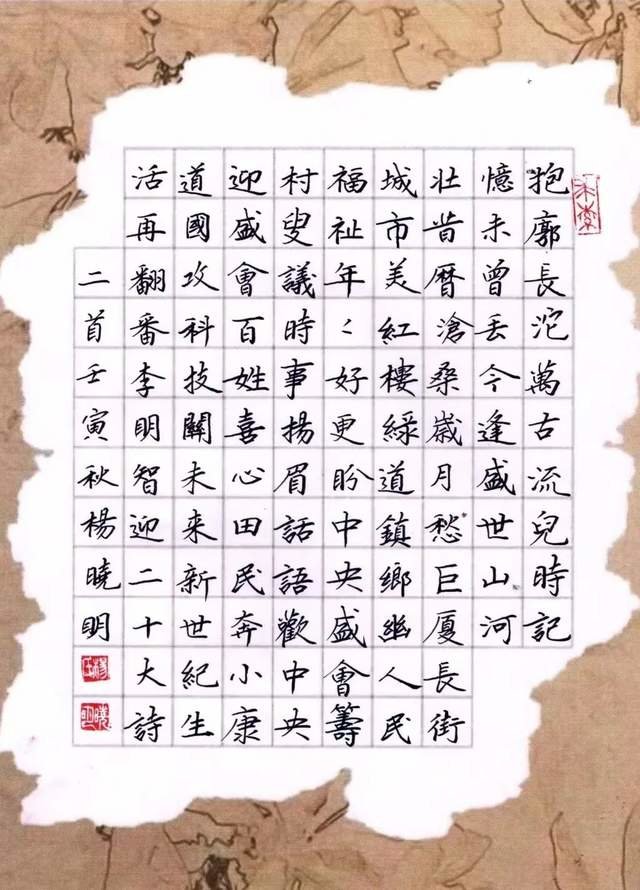 抱廓長沱萬古流兒時記
憶未曾丟今逢盛世山河
壯昔曆滄桑歲月愁巨廈長街
城市美紅樓綠道鎮鄉幽人民
福祉年〻好更盼中央盛會籌
村叟議時事揚眉話語歡中央
迎盛會百姓喜心田民奔小康
道國攻科技關未來新世紀生
活再翻番李明智迎二十大詩
二首壬寅秋楊曉明
曉明